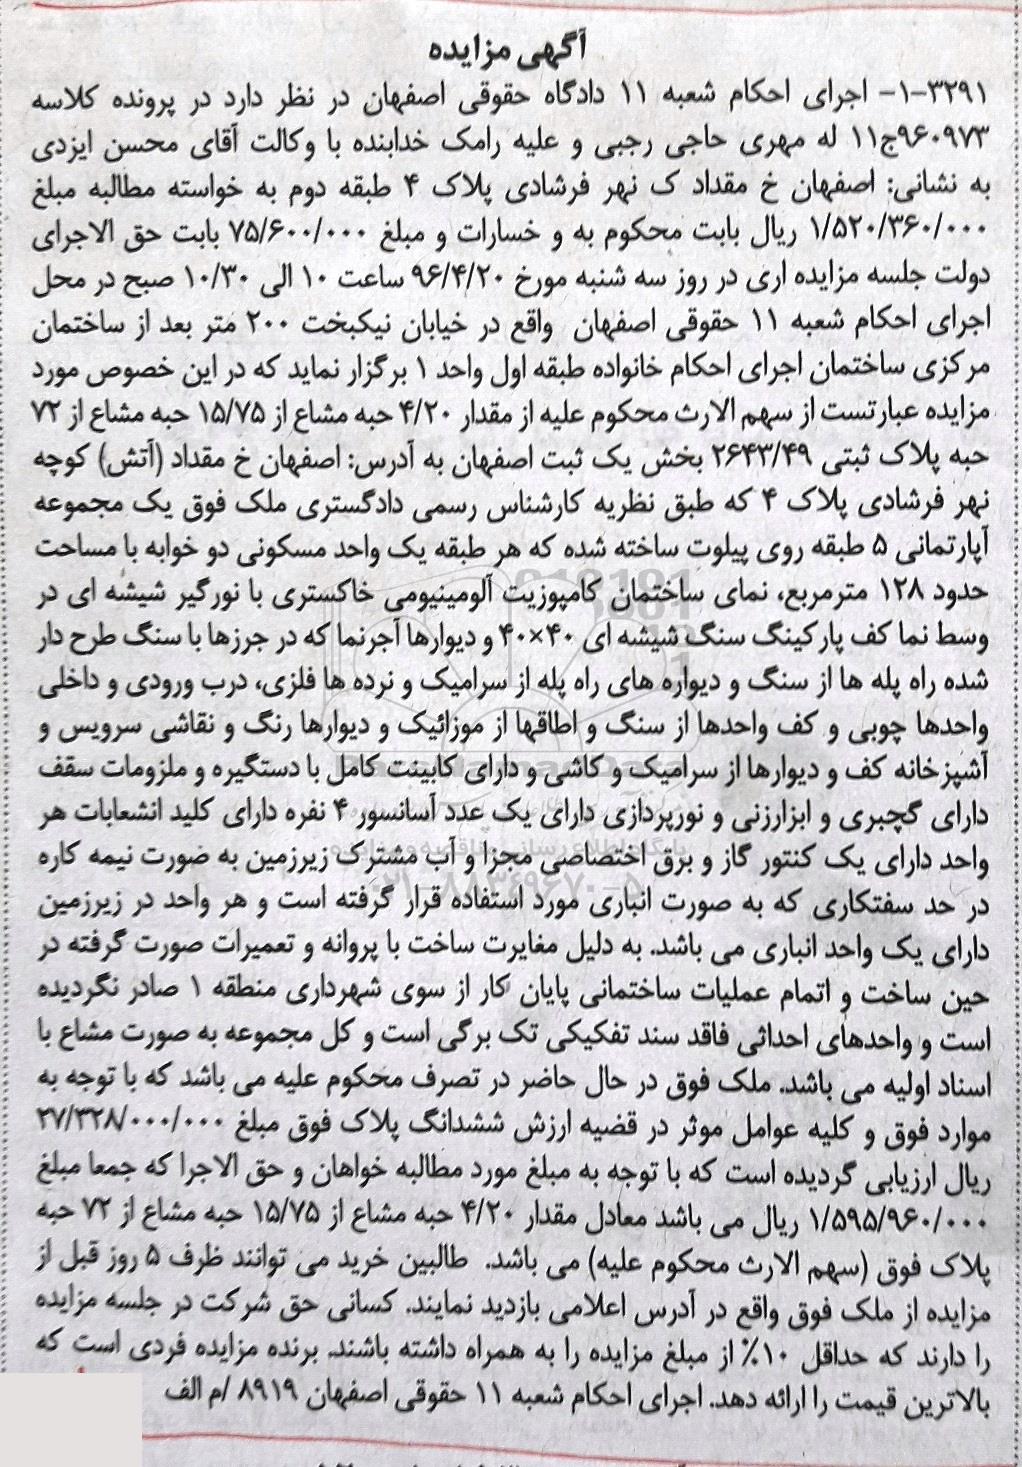 آگهی مزایده
۱-۳۲۹۱- اجرای احکام شعبه ۱۱ دادگاه حقوقی اصفهان در نظر دارد در پرونده کلاسه
۹۶۰۹۷۳ج۱۱ له مهری حاجی رجبی و علیه رامک خدابنده با وکالت آقای محسن ایزدی
به نشانی: اصفهان خ مقداد ک نهر فرشادی پلاک ۴ طبقه دوم به خواسته مطالبه مبلغ
۱/۵۲۰/۳۶۰/۰۰۰ ریال بابت محکوم به و خسارات و مبلغ ۷۵/۶۰۰/۰۰۰ بابت حق الاجرای
دولت جلسه مزایده اری در روز سه شنبه مورخ ۹۶/۴/۲۰ ساعت ۱۰ الی ۱۰/۳۰ صبح در محل
اجرای احکام شعبه ۱۱ حقوقی اصفهان واقع در خیابان نیکبخت ۲۰۰ متر بعد از ساختمان
مرکزی ساختمان اجرای احکام خانواده طبقه اول واحد ۱ برگزار نماید که در این خصوص مورد
مزایده عبارتست از سهم الارث محکوم علیه از مقدار ۴/۲۰ حبه مشاع از ۱۵/۷۵ حبه مشاع از ۷۲
حبه پلاک ثبتی ۲۶۴۳/۴۹ بخش یک ثبت اصفهان به آدرس: اصفهان خ مقداد (آتش) کوچه
نهر فرشادی پلاک ۴ که طبق نظریه کارشناس رسمی دادگستری ملک فوق یک مجموعه
آپارتمانی ۵ طبقه روی پیلوت ساخته شده که هر طبقه یک واحد مسکونی دو خوابه با مساحت
حدود ۱۲۸ مترمربع، نمای ساختمان کامپوزیت آلومینیومی خاکستری با نورگیر شیشه ای در
وسط نما کف پارکینگ سنگ شیشه ای ۴۰×۴۰ و دیوارها آجرنما که در جرزها با سنگ طرح دار
شده راه پله ها از سنگ و دیواره های راه پله از سرامیک و نرده ها فلزی، درب ورودی و داخلی
واحدها چوبی و کف واحدها از سنگ و اطاقها از موزائیک و دیوارها رنگ و نقاشی سرویس و
آشپزخانه کف و دیوارها از سرامیک و کاشی و دارای کابینت کامل با دستگیره و ملزومات سقف
دارای گچبری و ابزارزنی و نورپردازی دارای یک عدد آسانسور ۴ نفره دارای کلید انشعابات هر
واحد دارای یک کنتور گاز و برق اختصاصی مجزا و آب مشترک زیرزمین به صورت نیمه کاره
در حد سفتکاری که به صورت انباری مورد استفاده قرار گرفته است و هر واحد در زیرزمین
دارای یک واحد انباری می باشد. به دلیل مغایرت ساخت با پروانه و تعمیرات صورت گرفته در
حین ساخت و اتمام عملیات ساختمانی پایان کار از سوی شهرداری منطقه ۱ صادر نگردیده
است و واحدهای احداثی فاقد سند تفکیکی تک برگی است و کل مجموعه به صورت مشاع با
اسناد اولیه می باشد. ملک فوق در حال حاضر در تصرف محکوم علیه می باشد که با توجه به
موارد فوق و کلیه عوامل موثر در قضیه ارزش ششدانگ پلاک فوق مبلغ ۲۷/۳۲۸/۰۰۰/۰۰۰
ریال ارزیابی گردیده است که با توجه به مبلغ مورد مطالبه خواهان و حق الاجرا که جمعا مبلغ
۱/۵۹۵/۹۶۰/۰۰۰ ریال می باشد معادل مقدار ۴/۲۰ حبه مشاع از ۱۵/۷۵ حبه مشاع از ۷۲ حبه
پلاک فوق (سهم الارث محکوم علیه) می باشد. طالبین خرید می توانند ظرف ۵ روز قبل از
مزایده از ملک فوق واقع در آدرس اعلامی بازدید نمایند. کسانی حق شرکت در جلسه مزایده
را دارند که حداقل ۱۰٪ از مبلغ مزایده را به همراه داشته باشند. برنده مزایده فردی است که
بالاترین قیمت را ارائه دهد. اجرای احکام شعبه ۱۱ حقوقی اصفهان ۸۹۱۹ /م الف